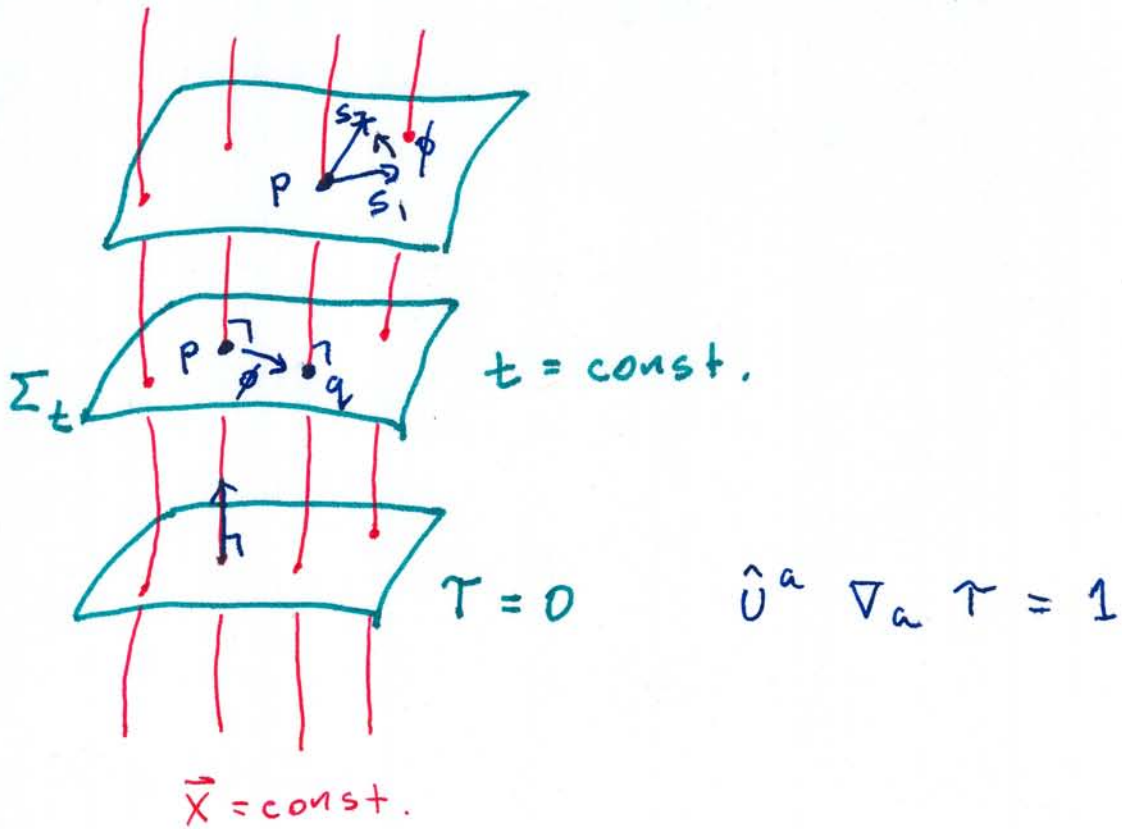 s₂ ϕ
p s₁
p ϕ q
Σₜ t = const.
τ = 0 û^a ∇ₐ τ = 1
x⃗ = const.